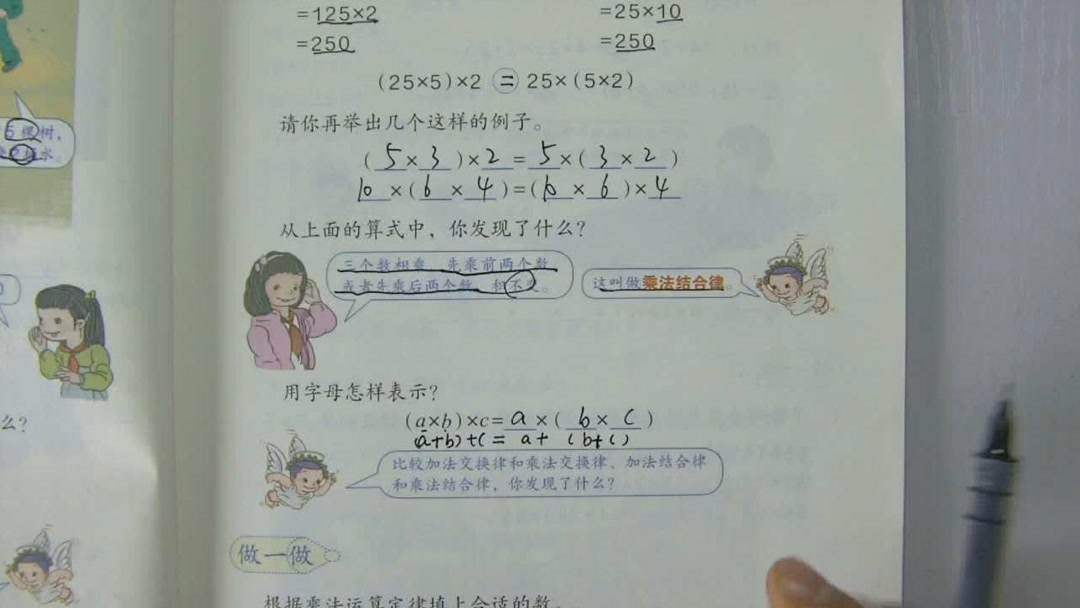 =125×2
=25×10
=250
=250
(25×5)×2 = 25×(5×2)
5棵树,
水。
请你再举出几个这样的例子。
(5×3)×2=5×(3×2)
10×(6×4)=(10×6)×4
从上面的算式中，你发现了什么？
三个数相乘，先乘前两个数，
或者先乘后两个数，积不变。
这叫做乘法结合律。
用字母怎样表示？
(a×b)×c=a×(b×c)
(a+b)+c=a+(b+c)
么？
比较加法交换律和乘法交换律、加法结合律
和乘法结合律，你发现了什么？
做一做
根据乘法运算定律填上合适的数。